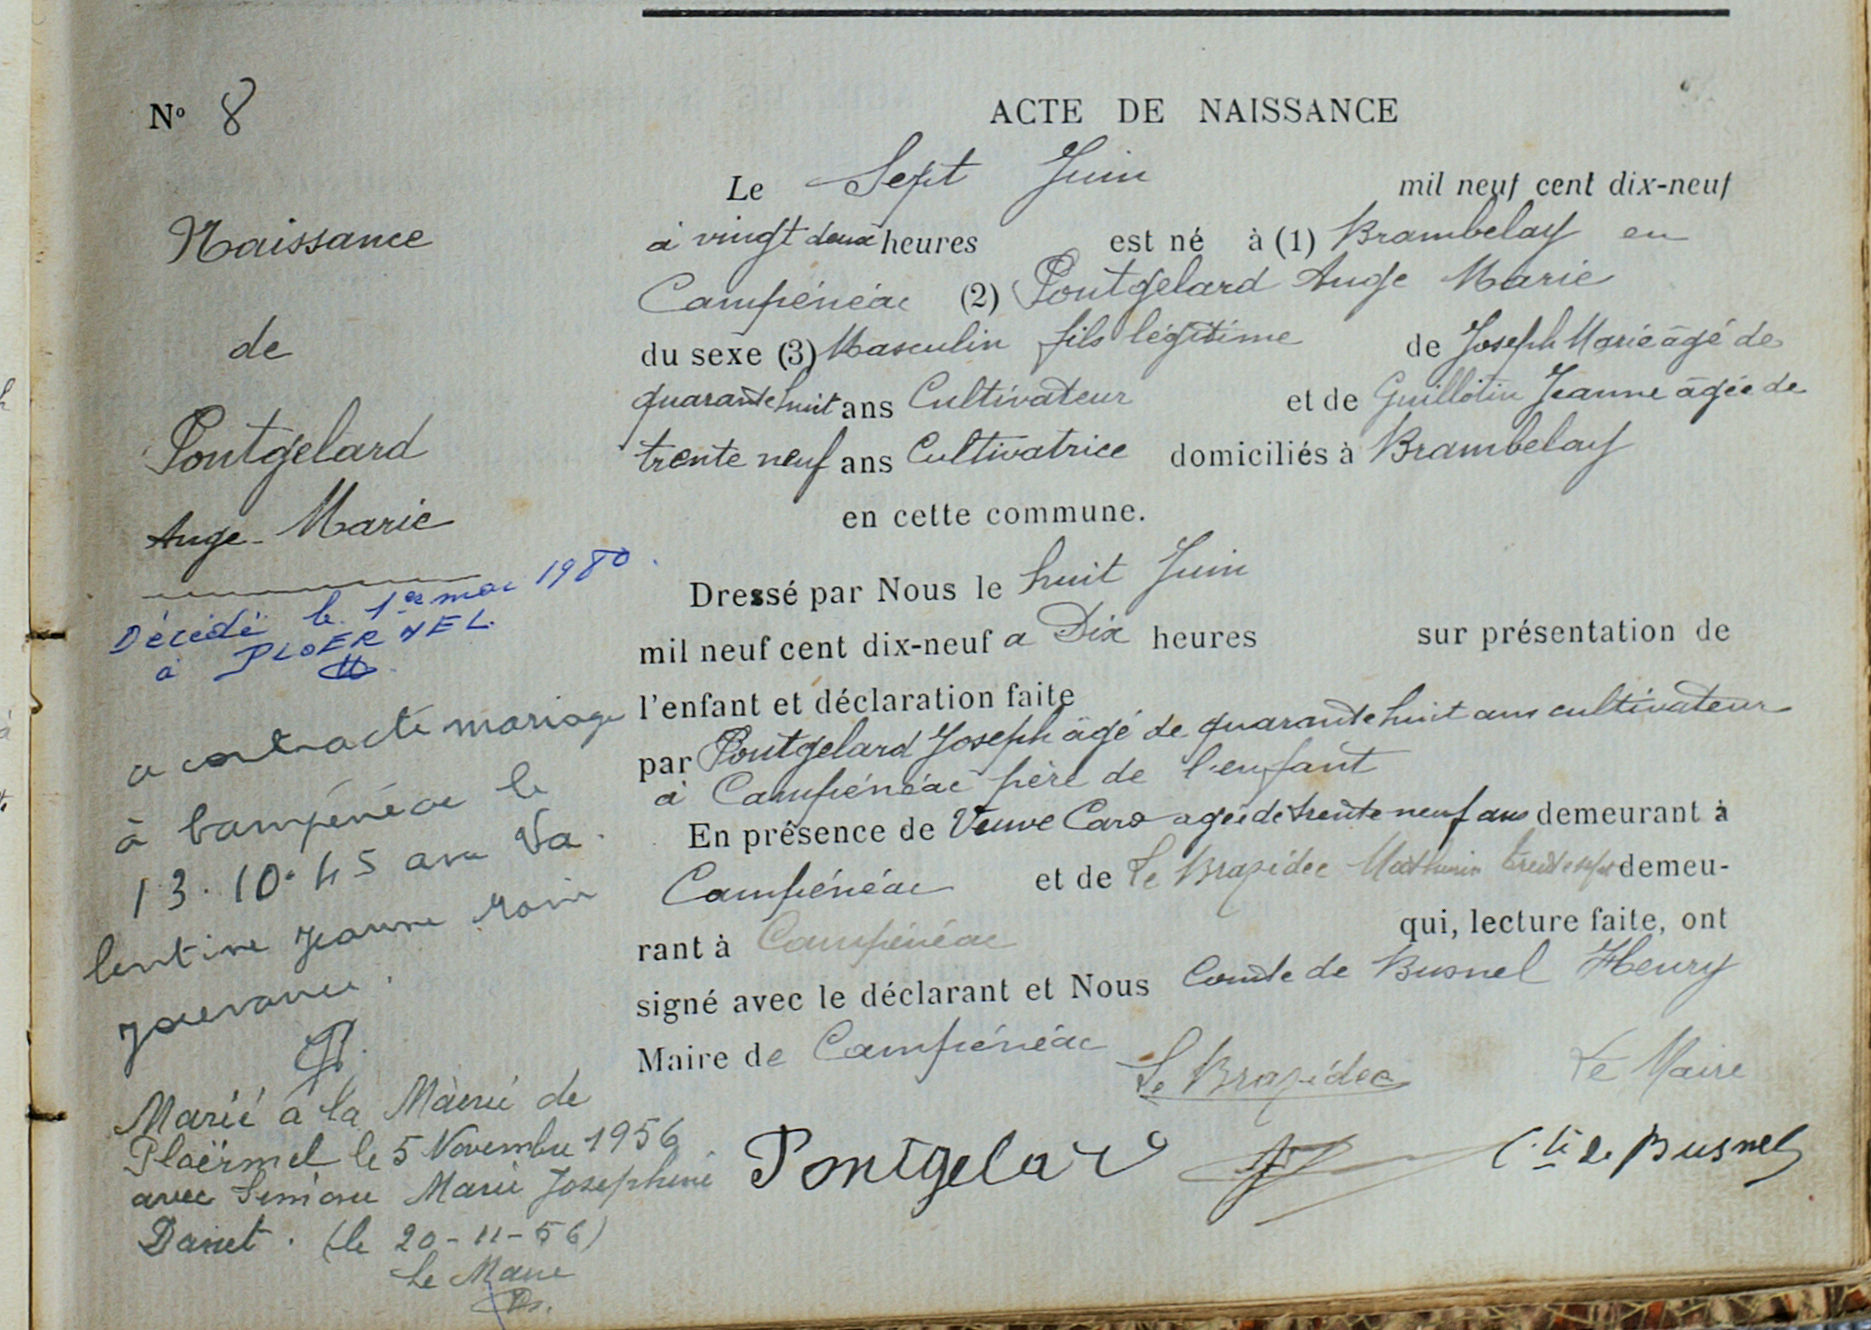 N° 8
Naissance
de
Pontgelard
Ange-Marie
Décédé le 1er mai 1980.
à PLOERMEL.
a contracté mariage
à Campénéac le
13.10.45 avec Va
lentine Jeanne Marie
Marié à la Mairie de
Ploërmel le 5 Novembre 1956
avec Simone Marie Josephine
Danet. (le 20-11-56)
Le Maire
ACTE DE NAISSANCE
Le Sept Juin mil neuf cent dix-neuf
à vingt deux heures est né à (1) Brambelay en
Campénéac (2) Pontgelard Ange Marie
du sexe (3) Masculin fils légitime de Joseph Marie âgé de
quarante huit ans Cultivateur et de Guillotin Jeanne âgée de
trente neuf ans Cultivatrice domiciliés à Brambelay
en cette commune.
Dressé par Nous le huit Juin
mil neuf cent dix-neuf a Dix heures sur présentation de
l'enfant et déclaration faite
par Pontgelard Joseph âgé de quarante huit ans cultivateur
à Campénéac père de l'enfant
En présence de Veuve Caro agée de trente neuf ans demeurant à
Campénéac et de Le Brazidec Mathurin demeu-
rant à Campénéac qui, lecture faite, ont
signé avec le déclarant et Nous Comte de Busnel Henry
Maire de Campénéac
Le Brazidec Le Maire
Pontgelard Cte de Busnel